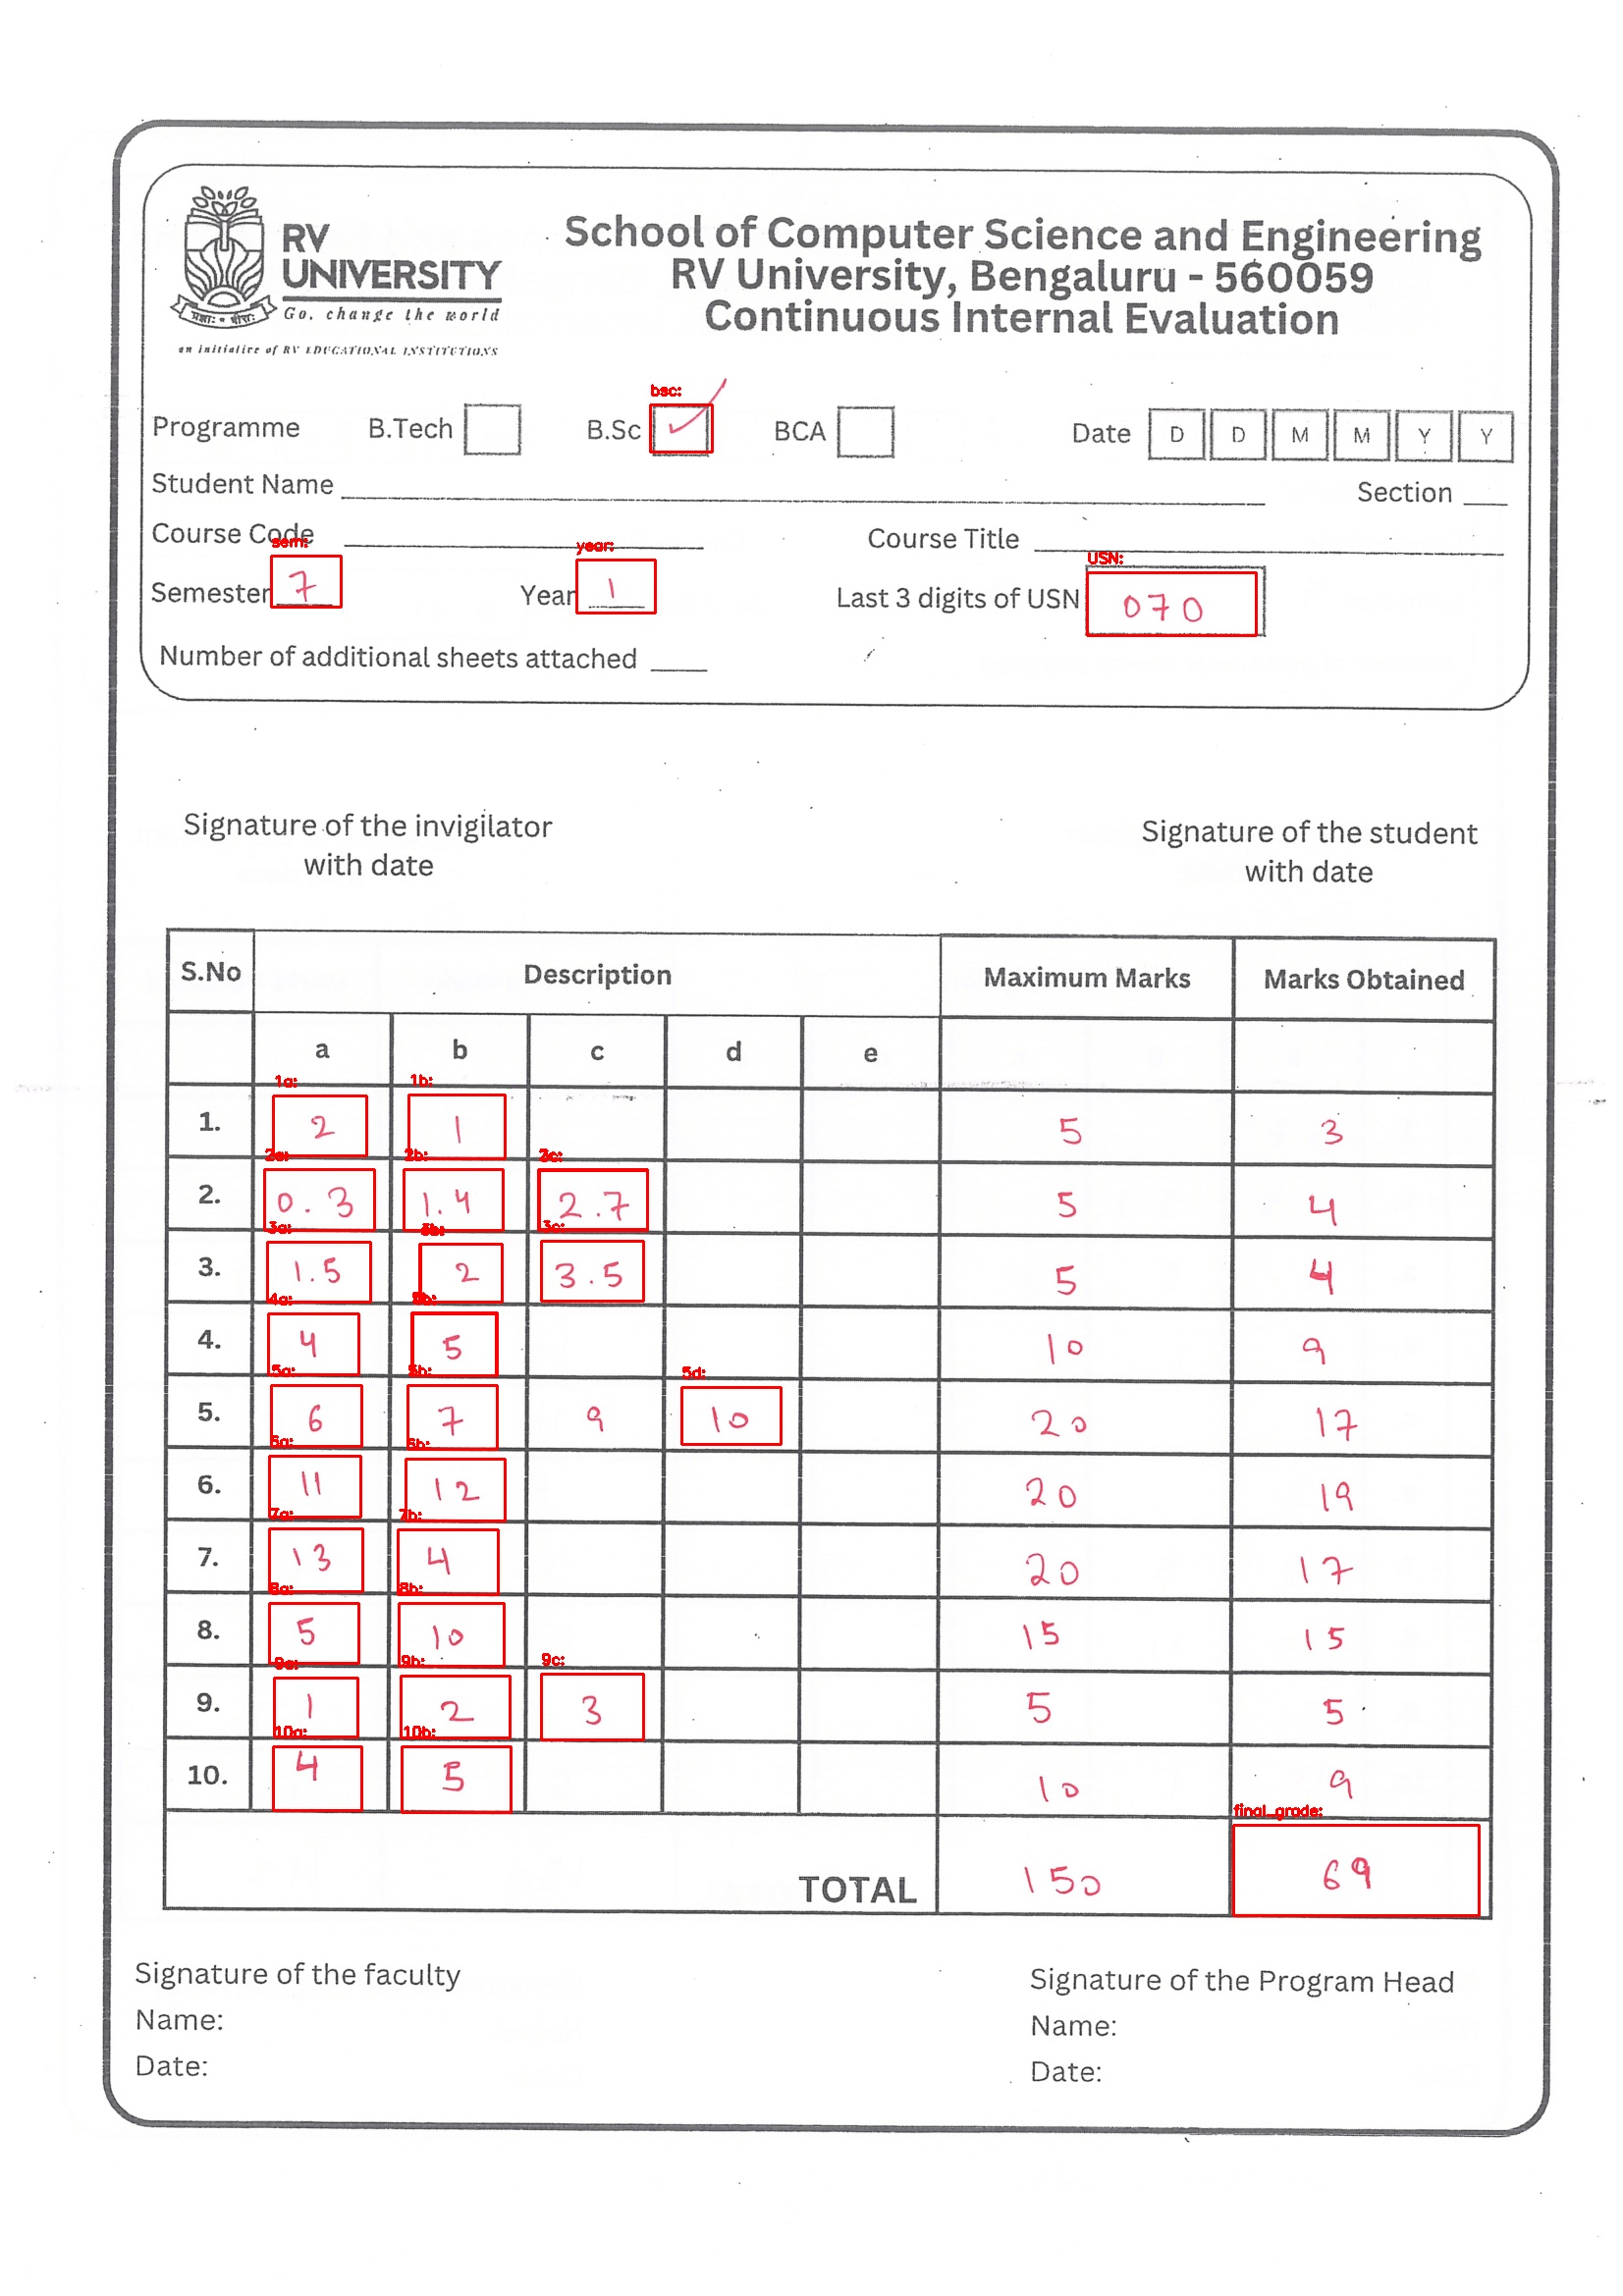 RV
UNIVERSITY
Go, change the world
an initiative of RV EDUCATIONAL INSTITUTIONS
School of Computer Science and Engineering
RV University, Bengaluru - 560059
Continuous Internal Evaluation
bsc:
Programme B.Tech B.Sc BCA Date D D M M Y Y
Student Name Section
Course Code Course Title
sem: year: USN:
Semester 7 Year 1 Last 3 digits of USN 070
Number of additional sheets attached
Signature of the invigilator
with date
Signature of the student
with date
S.No Description Maximum Marks Marks Obtained
a b c d e
1a: 1b:
1. 2 1 5 3
2a: 2b:
2. 0.3 1.4 2.7 5 4
3a: 3c:
3. 1.5 2 3.5 5 4
4a:
4. 4 5 10 9
5a: 5b: 5d:
5. 6 7 9 10 20 17
6a: 6b:
6. 11 12 20 19
7a: 7b:
7. 13 4 20 17
8a: 8b:
8. 5 10 15 15
9a: 9b: 9c:
9. 1 2 3 5 5
10a: 10b:
10. 4 5 10 9
final_grade:
TOTAL 150 69
Signature of the faculty
Name:
Date:
Signature of the Program Head
Name:
Date: